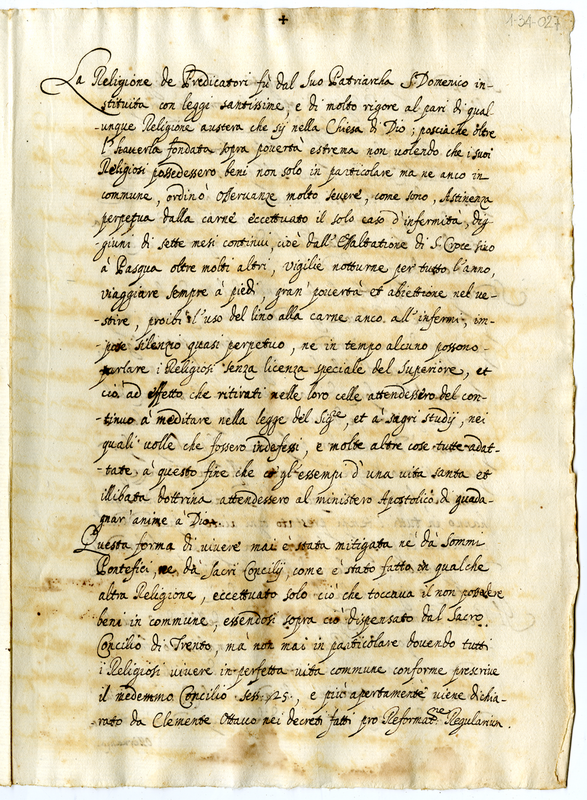 1-34-027
La Religione de Predicatori fù dal suo Patriarcha S. Domenico in-
stituita con legge santissime, e di molto rigore al pari di qual-
-unque Religione austera che sij nella Chiesa di Dio; posciache oltre
l'haverla fondata sopra povertà estrema non volendo che i suoi
Religiosi possedessero beni non solo in particolare ma ne anco in
commune, ordinò osservanze molto severe, come sono, Astinenza
perpetua dalla carne eccettuato il solo caso d'infermità, di-
-giuni di sette mesi continui, cioè dall'Esaltatione di S. Croce sino
à Pasqua oltre molti altri, vigilie notturne per tutto l'anno,
viaggiare sempre à piedi, gran povertà et abiettione nel ve-
-stire, proibì l'uso del lino alla carne anco all'infermi, im-
-pose silenzio quasi perpetuo, ne in tempo alcuno possono
parlare i Religiosi senza licenza speciale del Superiore, et
ciò ad effetto che ritirati nelle loro celle attendessero del con-
-tinuo à meditare nella legge del Sig.re, et à sagri studij, nei
quali volle che fossero indefessi, e molte altre cose tutte adat-
-tate à questo fine che gl'essempi d'una vita santa et
illibata dottrina attendessero al ministero Apostolico, di guada-
gnar'anime a Dio.
Questa forma di vivere mai è stata mitigata ne dà Sommi
Pontefici, ne dà Sacri Concilij, come è stato fatto in qualche
altra Religione, eccettuato solo ciò che toccava il non possedere
beni in commune, essendosi sopra ciò dispensato dal Sacro
Concilio di Trento, mà non mai in particolare dovendo tutti
i Religiosi vivere in perfetta vita commune conforme prescrive
il medemmo Concilio Sess. 25., e più apertamente viene dichia-
rato da Clemente Ottavo nei decreti fatti pro Reformat.ne Regularium.